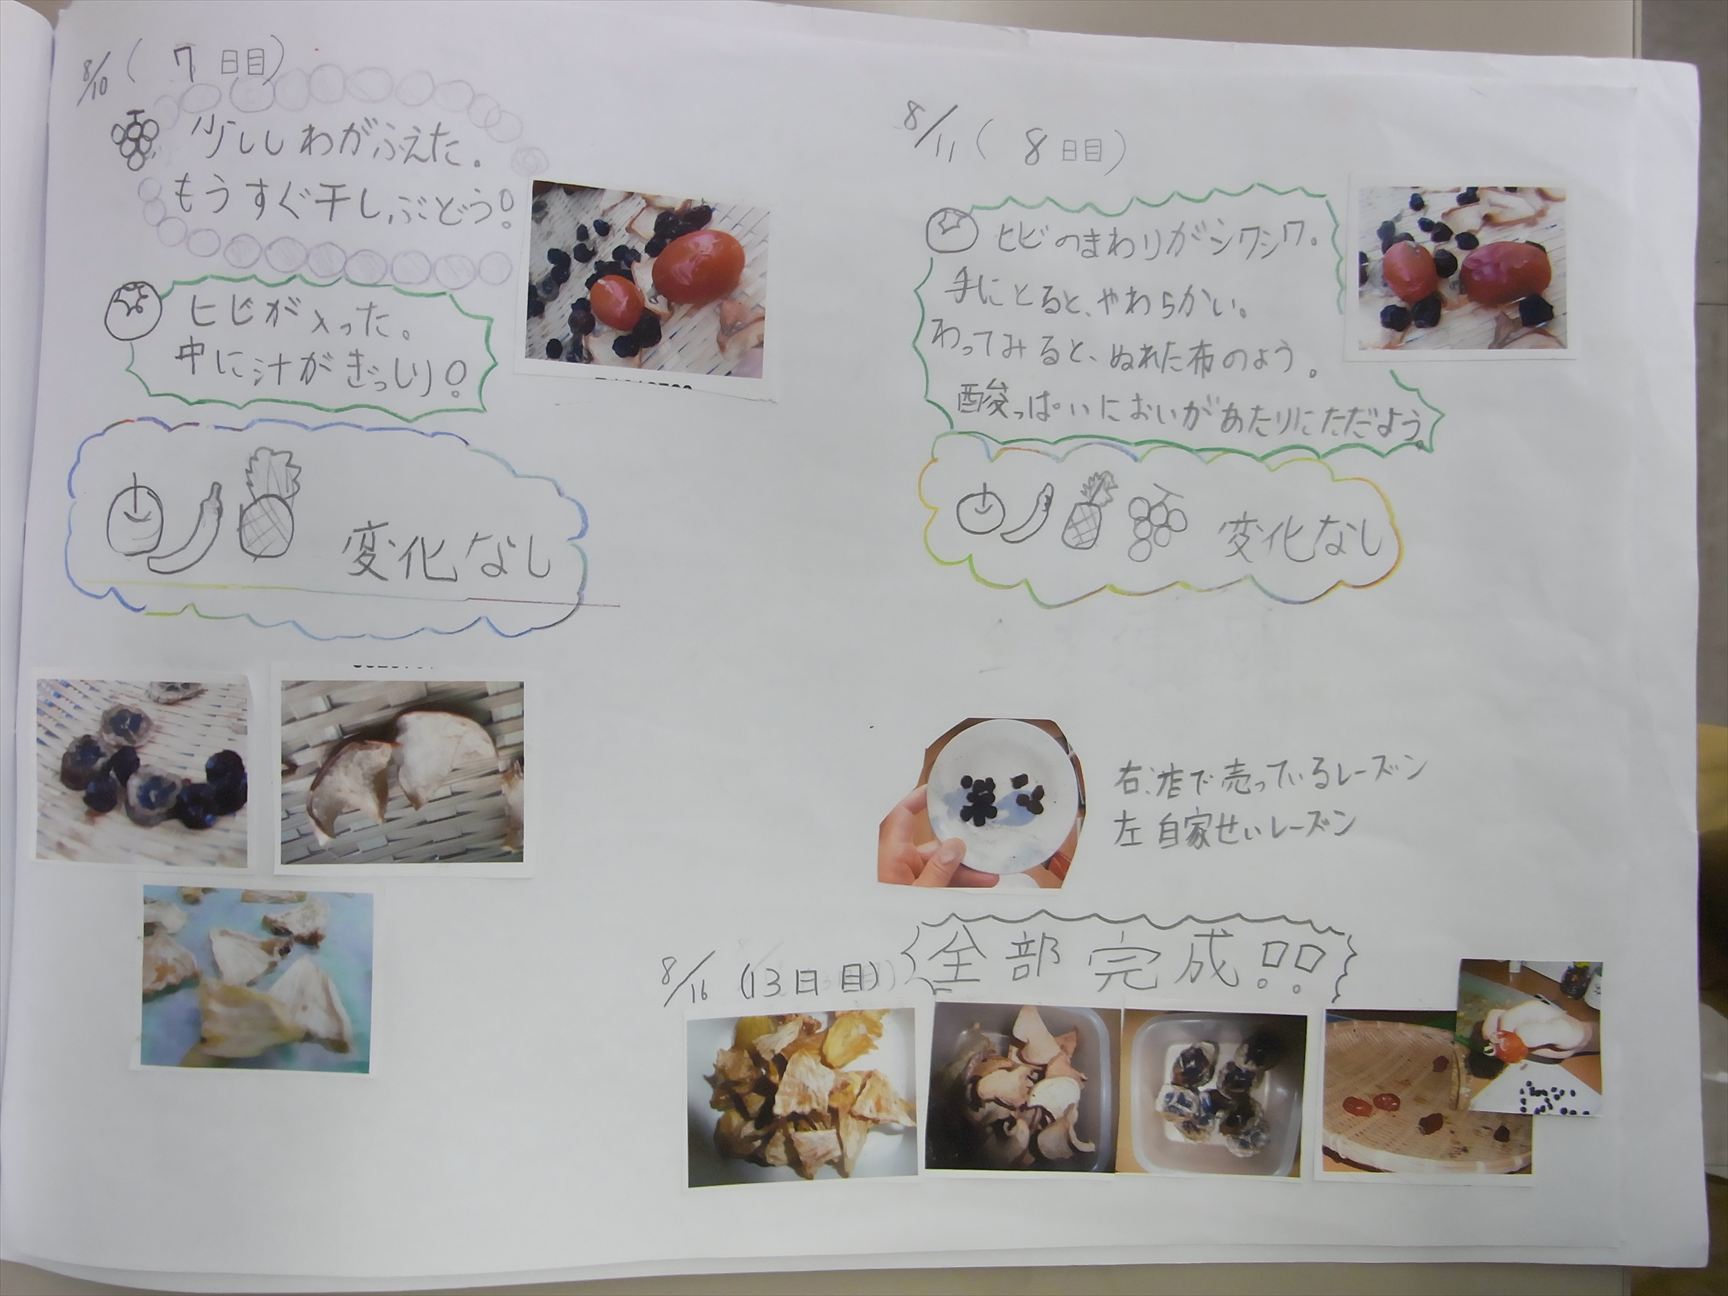 8/10(7日目)
少ししわがふえた。
もうすぐ干しぶどう!
ヒビが入った。
中に汁がぎっしり!
変化なし
8/11(8日目)
ヒビのまわりがシワシワ。
手にとると、やわらかい。
わってみると、ぬれた布のよう。
酸っぱいにおいがあたりにただよう。
変化なし
右:店で売っているレーズン
左 自家せいレーズン
8/16(13日目)全部完成!!